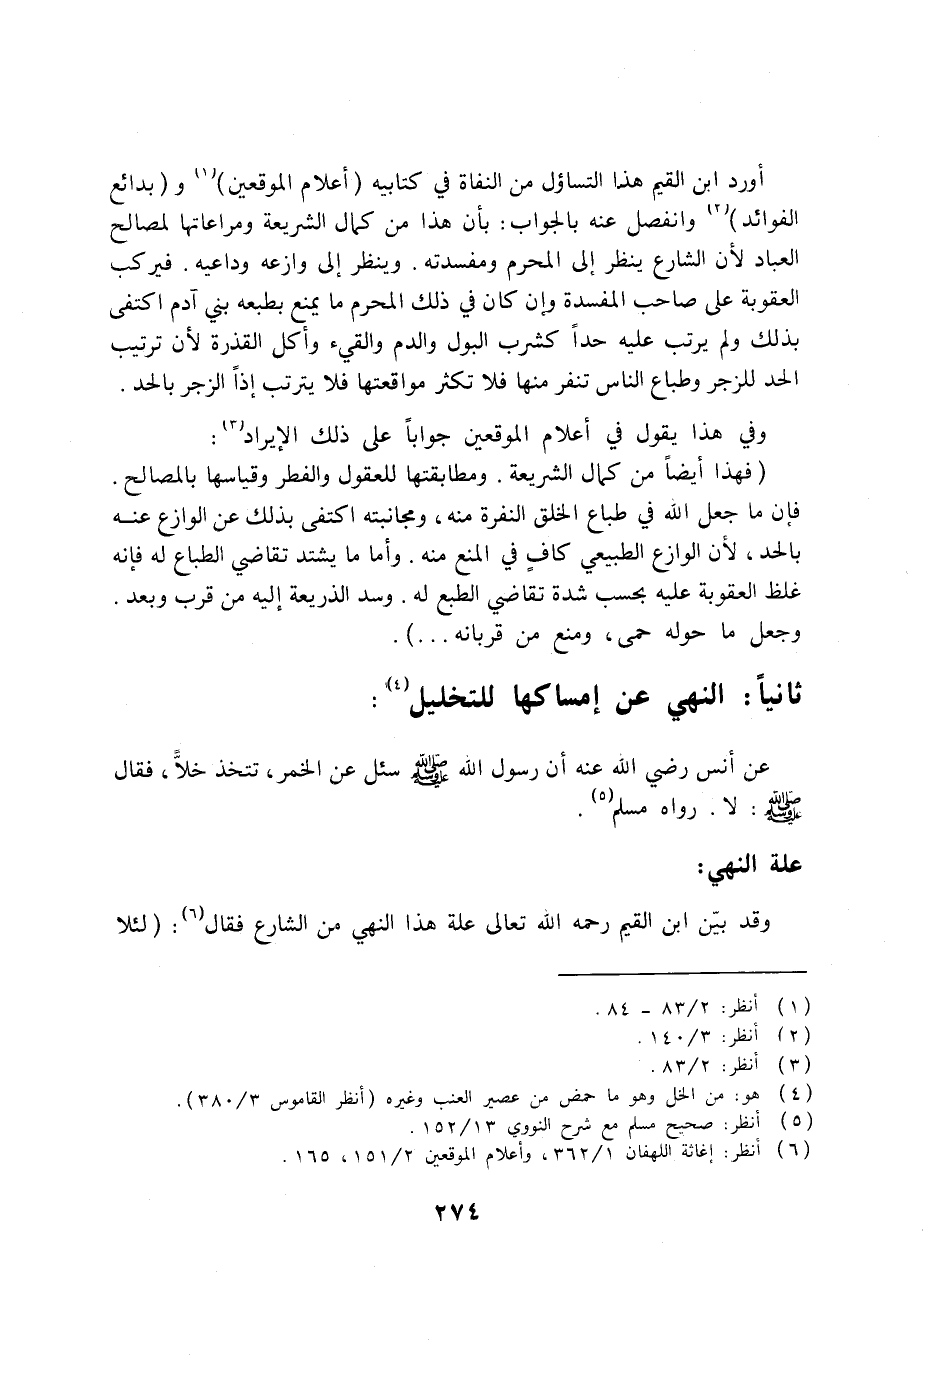 أورد ابن القيم هذا التساؤل من النفاة في كتابيه (أعلام الموقعين)(١) و (بدائع
الفوائد)(٢) وانفصل عنه بالجواب: بأن هذا من كمال الشريعة ومراعاتها لمصالح
العباد لأن الشارع ينظر إلى المحرم ومفسدته. وينظر إلى وازعه وداعيه. فيركب
العقوبة على صاحب المفسدة وإن كان في ذلك المحرم ما يمنع بطبعه بني آدم اكتفى
بذلك ولم يرتب عليه حداً كشرب البول والدم والقيء وأكل القذرة لأن ترتيب
الحد للزجر وطباع الناس تنفر منها فلا تكثر مواقعتها فلا يترتب إذاً الزجر بالحد.
وفي هذا يقول في أعلام الموقعين جواباً على ذلك الإيراد(٣):
(فهذا أيضاً من كمال الشريعة. ومطابقتها للعقول والفطر وقياسها بالمصالح.
فإن ما جعل الله في طباع الخلق النفرة منه، ومجانبته اكتفى بذلك عن الوازع عنه
بالحد، لأن الوازع الطبيعي كافٍ في المنع منه. وأما ما يشتد تقاضي الطباع له فإنه
غلظ العقوبة عليه بحسب شدة تقاضي الطبع له. وسد الذريعة إليه من قرب وبعد.
وجعل ما حوله حمى، ومنع من قربانه...).
ثانياً: النهي عن إمساكها للتخليل(٤):
عن أنس رضي الله عنه أن رسول الله ﷺ سئل عن الخمر، تتخذ خلاًّ، فقال
ﷺ: لا. رواه مسلم(٥).
علة النهي:
وقد بيّن ابن القيم رحمه الله تعالى علة هذا النهي من الشارع فقال(٦): (لئلا
(١) أنظر: ٨٣/٢ - ٨٤.
(٢) أنظر: ١٤٠/٣.
(٣) أنظر: ٨٣/٢.
(٤) هو: من الخل وهو ما حمض من عصير العنب وغيره (أنظر القاموس ٣٨٠/٣).
(٥) أنظر: صحيح مسلم مع شرح النووي ١٥٢/١٣.
(٦) أنظر: إغاثة اللهفان ٣٦٢/١، وأعلام الموقعين ١٥١/٢، ١٦٥.
٢٧٤